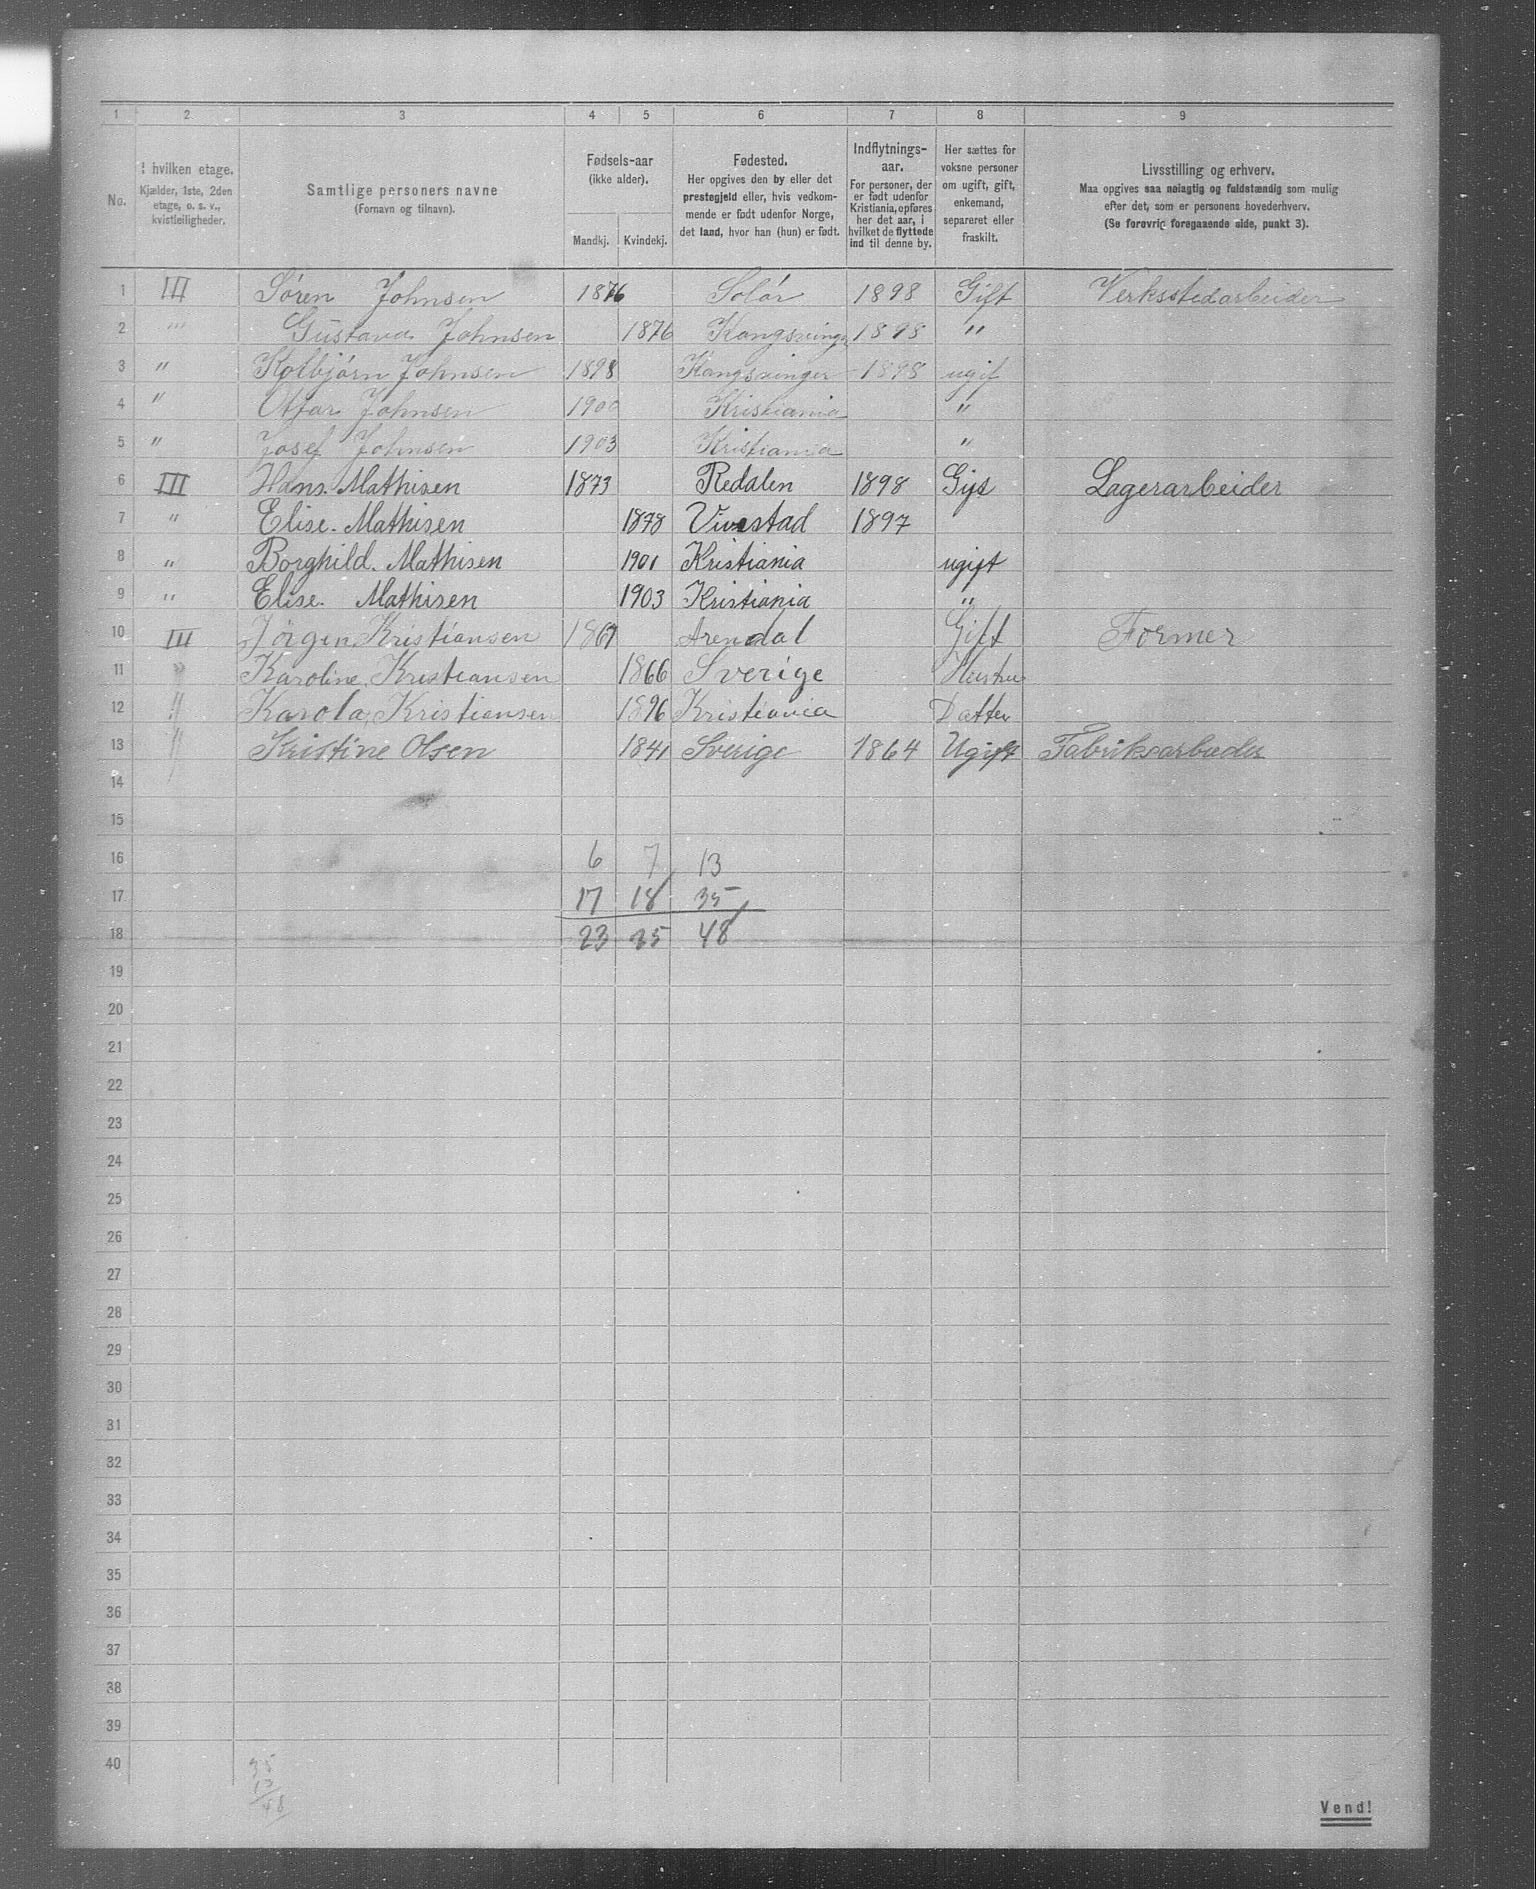 1 2 3 4 5 6 7 8 9
No.
I hvilken etage.
Kjælder, 1ste, 2den
etage, o. s. v.,
kvistleiligheder.
Samtlige personers navne
(Fornavn og tilnavn).
Fødsels-aar
(ikke alder).
Mandkj. Kvindekj.
Fødested.
Her opgives den by eller det
prestegjeld eller, hvis vedkom-
mende er født udenfor Norge,
det land, hvor han (hun) er født.
Indflytnings-
aar.
For personer, der
er født udenfor
Kristiania, opføres
her det aar, i
hvilket de flyttede
ind til denne by.
Her sættes for
voksne personer
om ugift, gift,
enkemand,
separeret eller
fraskilt.
Livsstilling og erhverv.
Maa opgives saa nøiagtig og fuldstændig som mulig
efter det, som er personens hovederhverv.
(Se forøvrig foregaaende side, punkt 3).
1 III Søren Johnsen 1876 Solør 1898 Gift Verksstedarbeider
2 " Gustava Johnsen 1876 Kongsvinger 1898 "
3 " Kolbjørn Johnsen 1898 Kongsvinger 1898 ugif
4 " Johnsen 1900 Kristiania "
5 " Josef Johnsen 1903 Kristiania "
6 III Hans Mathisen 1873 Redalen 1898 Gift Lagerarbeider
7 " Elise. Mathisen 1878 Vivestad 1897
8 " Borghild. Mathisen 1901 Kristiania ugift
9 " Elise. Mathisen 1903 Kristiania "
10 III Jörgen Kristiansen 1867 Arendal Gift Former
11 " Karoline Kristiansen 1866 Sverige Hustru
12 " Karola Kristiansen 1896 Kristiania Datter
13 " Kristine Olsen 1841 Sverige 1864 Ugift Fabriksarbeider
14
15
16 6 7 13
17 17 18 35
18 23 25 48
19
20
21
22
23
24
25
26
27
28
29
30
31
32
33
34
35
36
37
38
39
40
35
13
48
Vend!